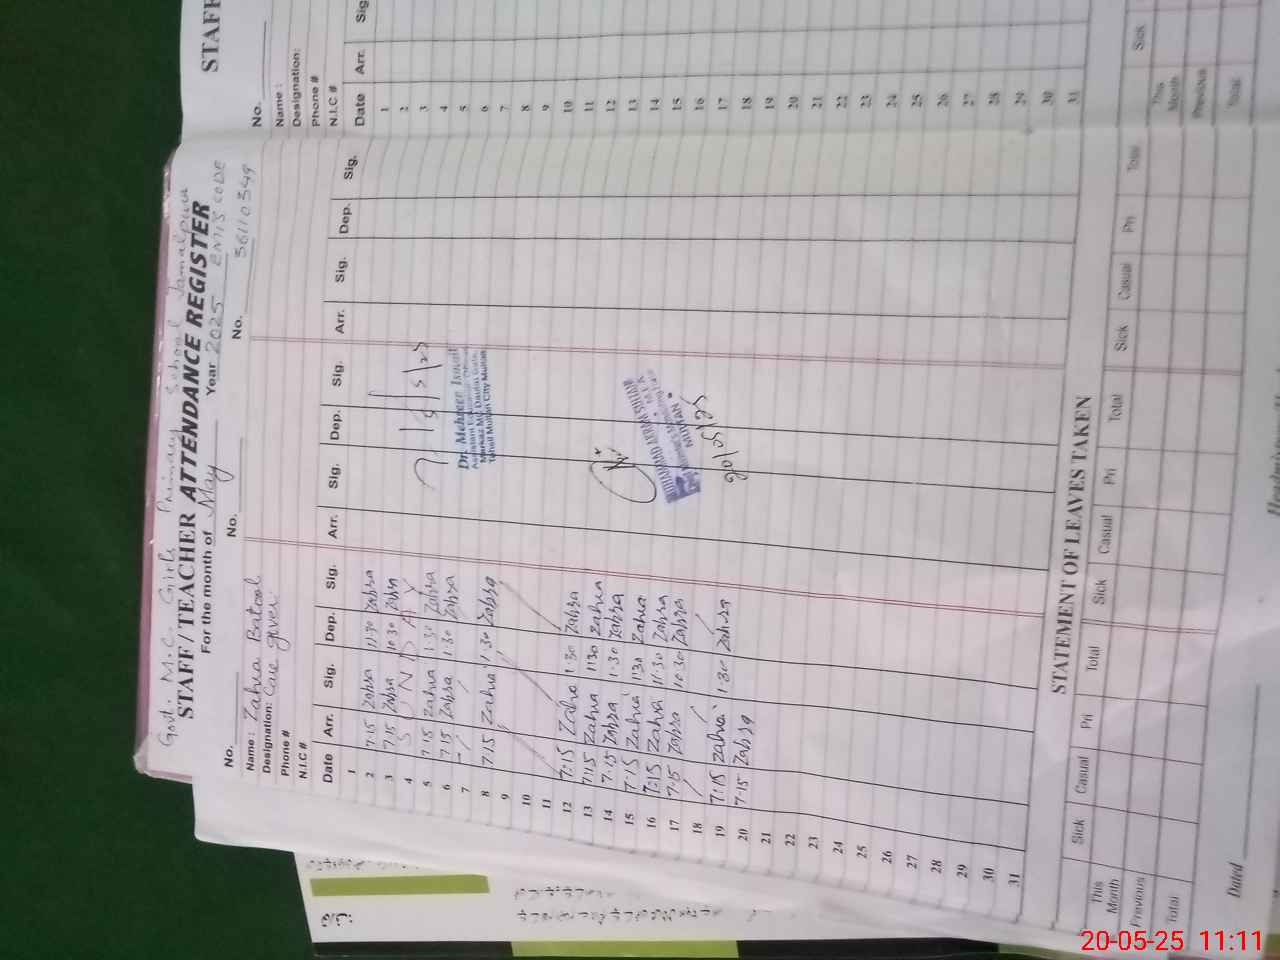 Govt. M.C. Girls Primary School Jamalpura
STAFF / TEACHER ATTENDANCE REGISTER
For the month of May Year 2025 EMIS CODE
No. No. No. 36110349
Name : Zahra Batool
Designation: Care giver
Phone #
N.I.C #
Date Arr. Sig. Dep. Sig. Arr. Sig. Dep. Sig. Arr. Sig. Dep. Sig.
1
2 7:15 Zahra 11:30 Zahra
3 7:15 Zahra 10:30 Zahra
4 S U N D A Y
5 7:15 Zahra 1:30 Zahra
6 7:15 Zahra 1:30 Zahra
7
8 7:15 Zahra 1:30 Zahra
9
10
11
12 7:15 Zahra 1:30 Zahra
13 7:15 Zahra 1:30 Zahra
14 7:15 Zahra 1:30 Zahra
15 7:15 Zahra 1:30 Zahra
16 7:15 Zahra 11:30 Zahra
17 7:15 Zahra 10:30 Zahra
18
19 7:15 Zahra 1:30 Zahra
20 7:15 Zahra
21
22
23
24
25
26
27
28
29
30
31
Dr. Mehreen Ismail
Tehsil Multan City Multan
20/05/25
STATEMENT OF LEAVES TAKEN
Sick Casual Pri Total Sick Casual Pri Total Sick Casual Pri Total
This Month
Previous
Total
Dated
STAFF
No.
Name :
Designation:
Phone #
N.I.C #
Date Arr. Sig
1
2
3
4
5
6
7
8
9
10
11
12
13
14
15
16
17
18
19
20
21
22
23
24
25
26
27
28
29
30
31
Sick
This Month
Previous
Total
20-05-25 11:11